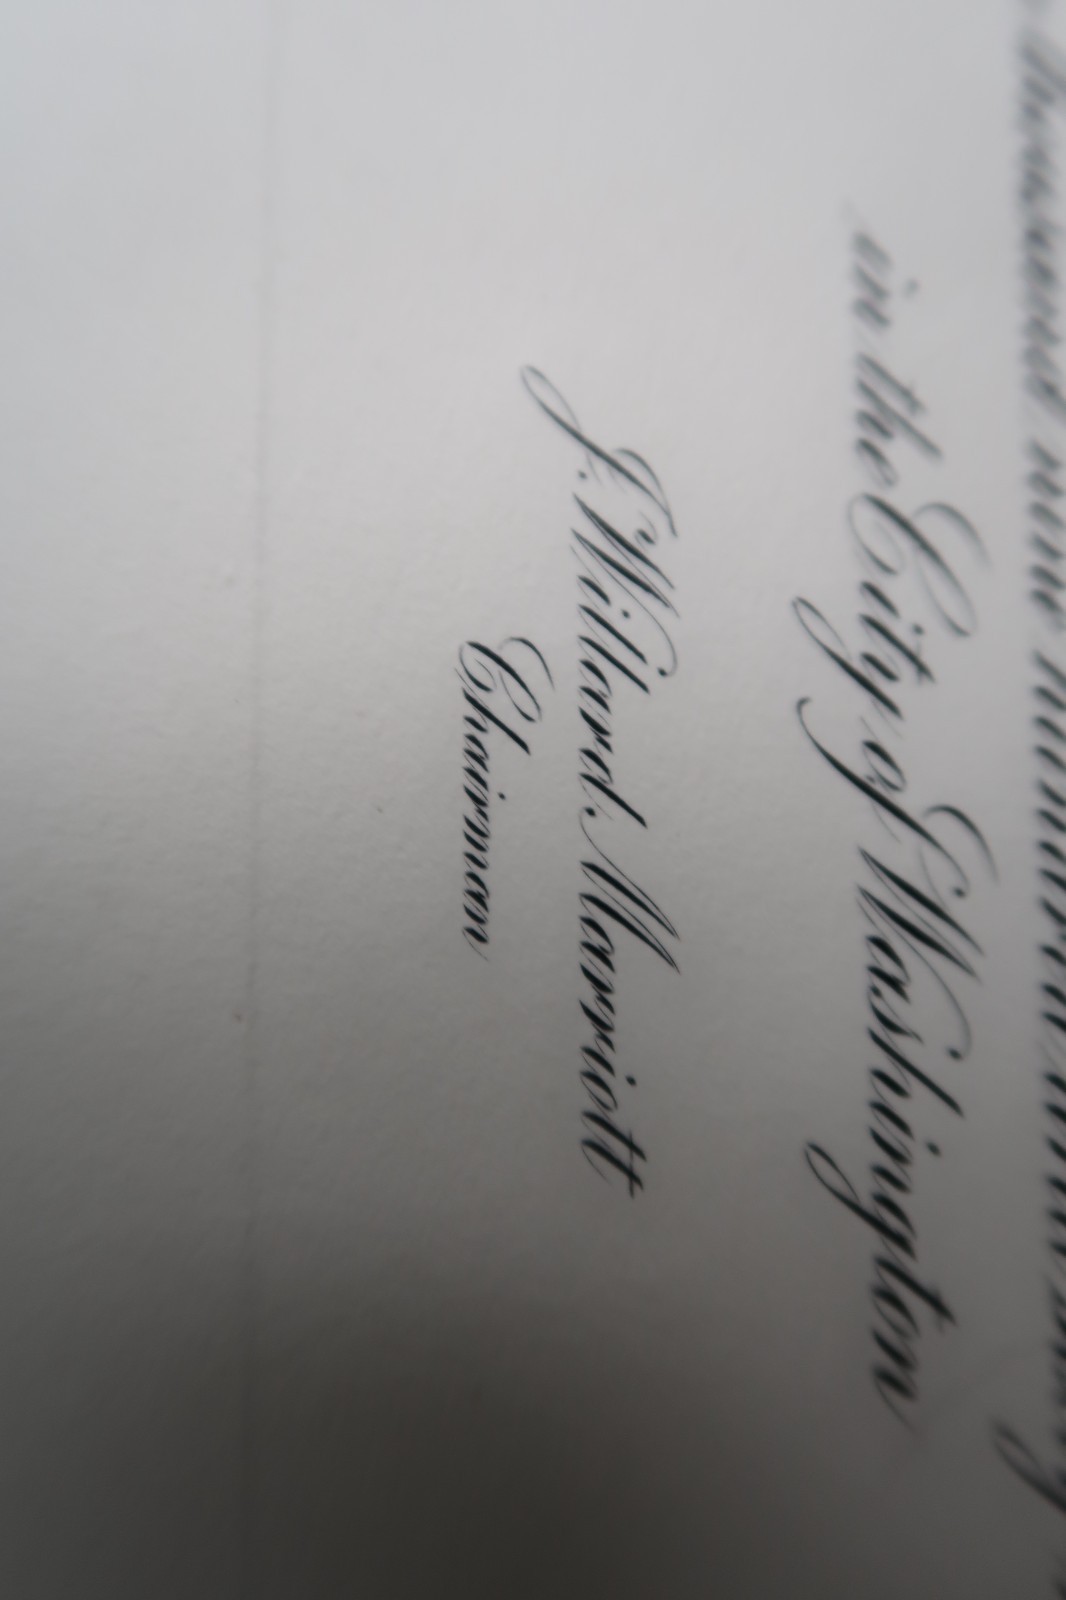 in the City of Washington
J. Willard Marriott
Chairman